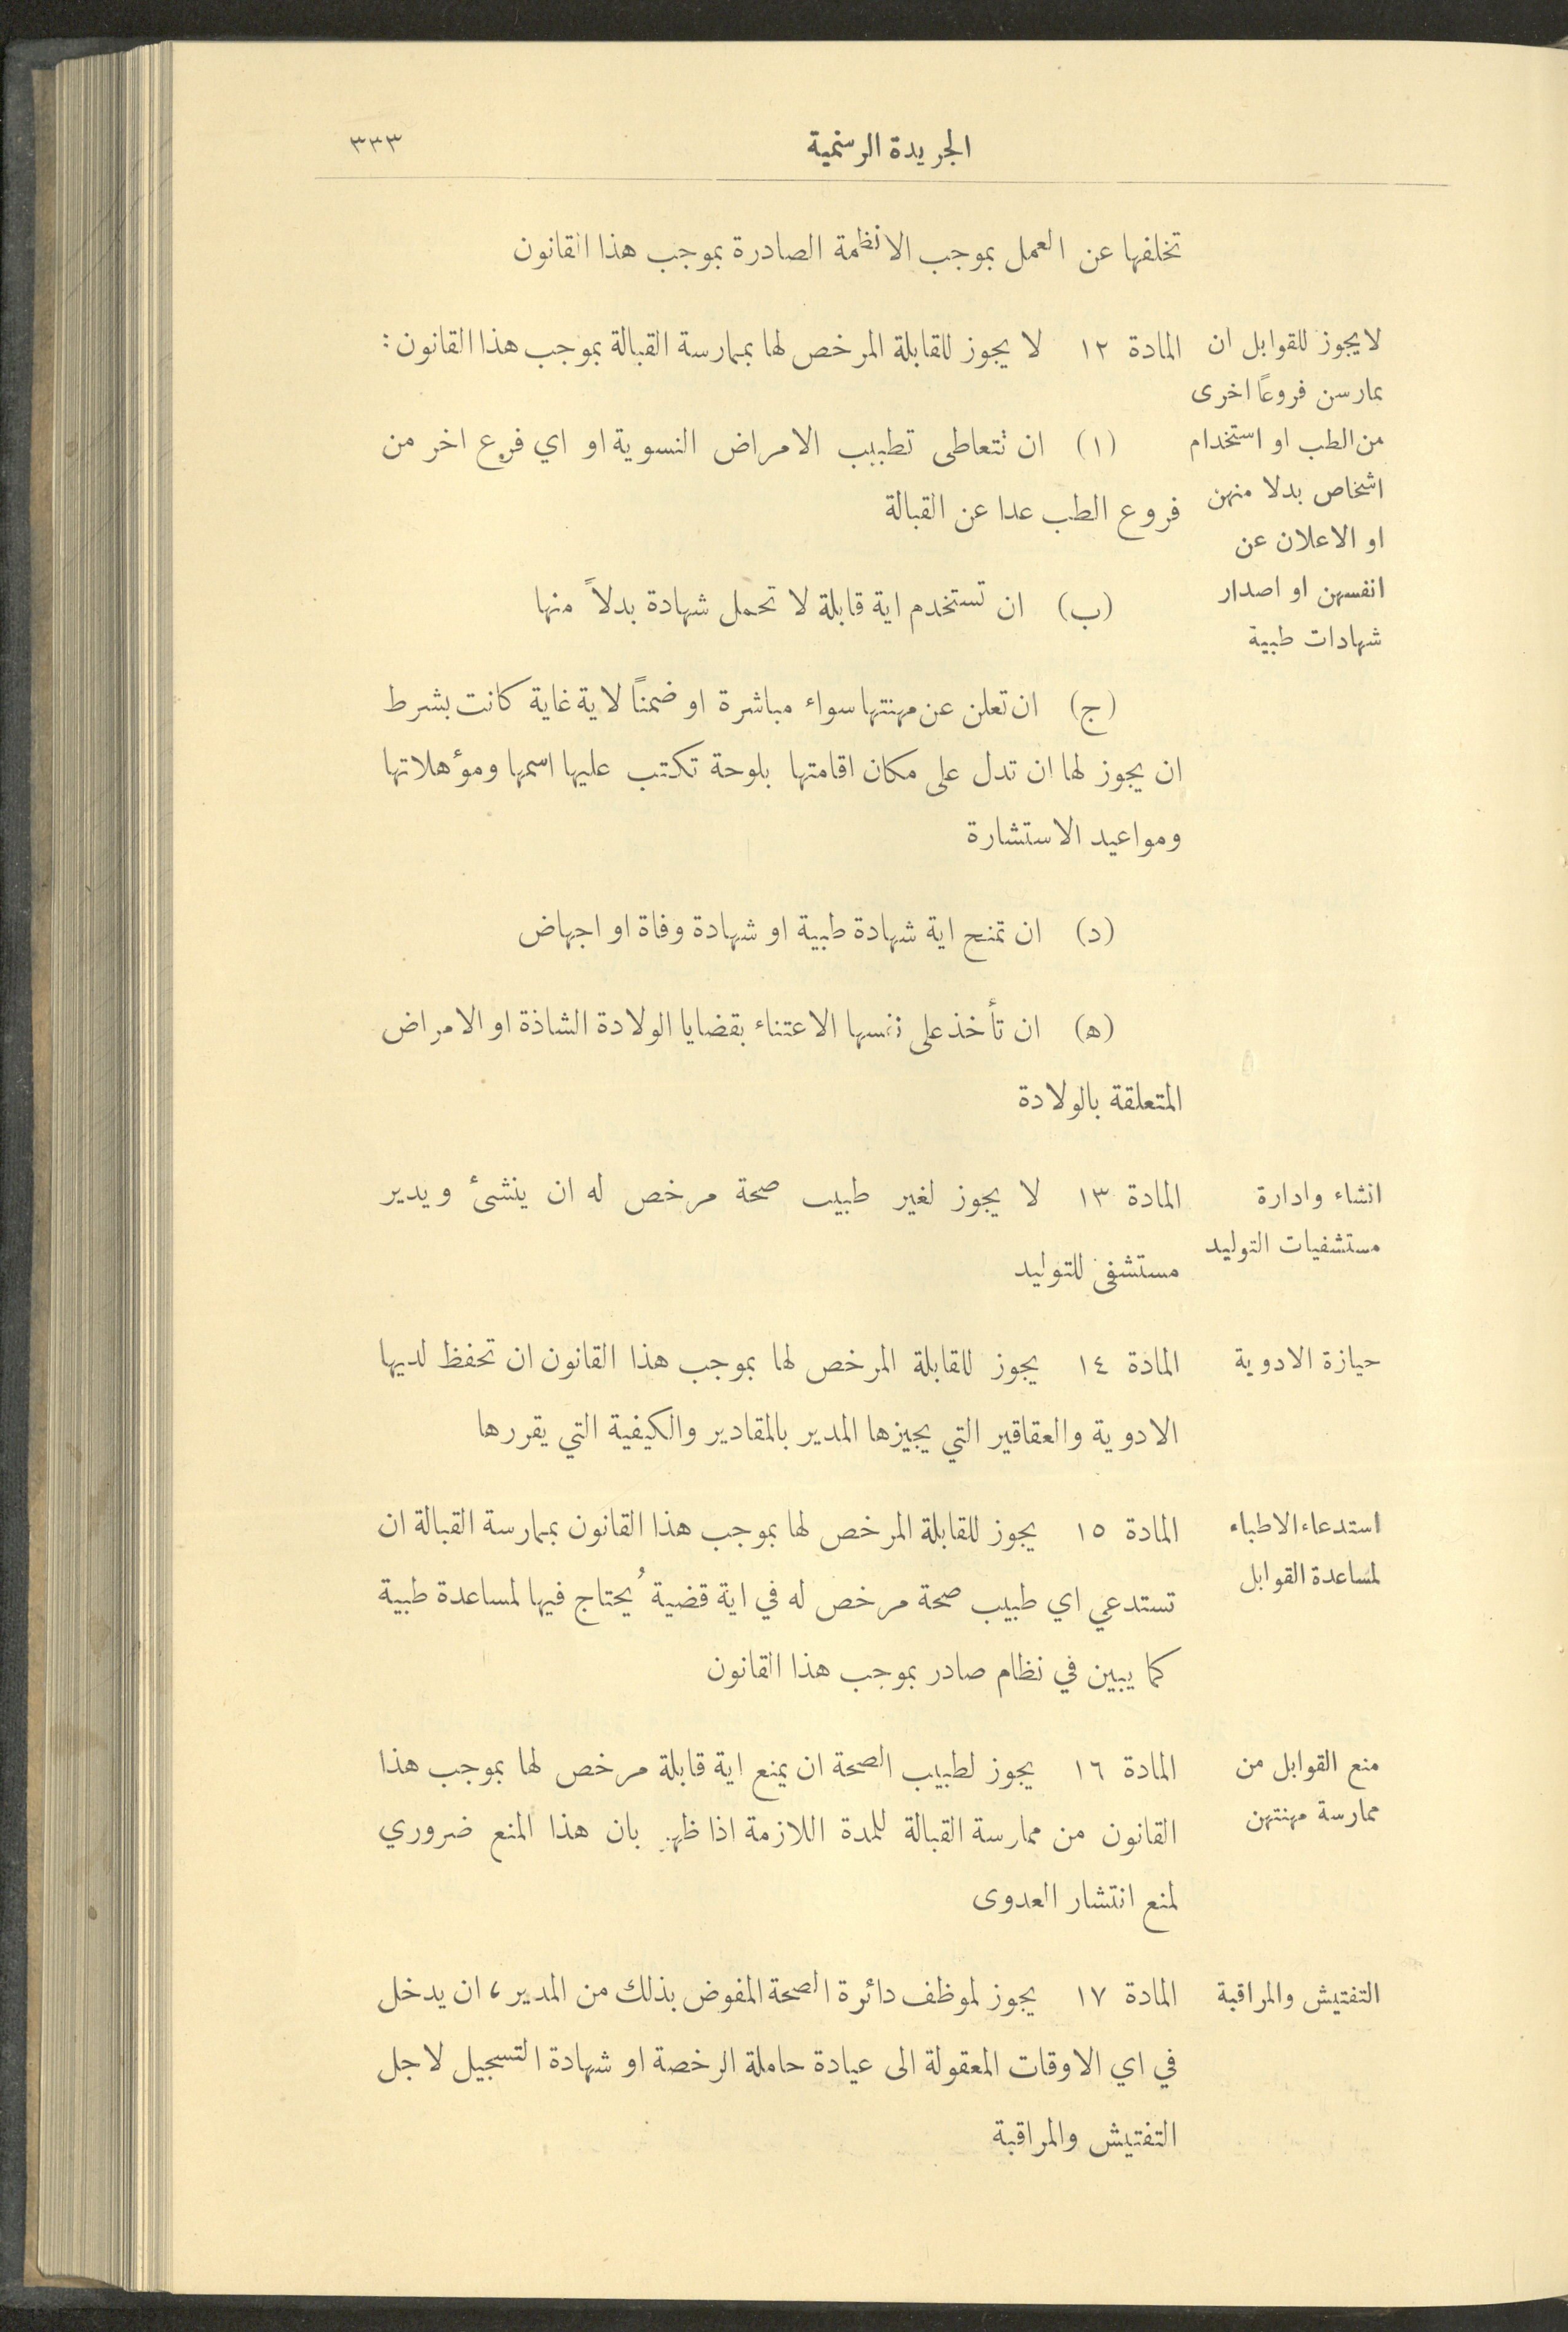 الجريدة الرسمية
٣٣٣
تخلفها عن العمل بموجب الانظمة الصادرة بموجب هذا القانون
لا يجوز للقوابل ان
يمارسن فروعاً اخرى
من الطب او استخدام
اشخاص بدلا منهن
او الاعلان عن
انفسهن او اصدار
شهادات طبية
المادة ١٢ لا يجوز للقابلة المرخص لها بممارسة القبالة بموجب هذا القانون :
(١) ان تتعاطى تطبيب الامراض النسوية او اي فرع اخر من
فروع الطب عدا عن القبالة
(ب) ان تستخدم اية قابلة لا تحمل شهادة بدلاً منها
(ج) ان تعلن عن مهنتها سواء مباشرة او ضمناً لاية غاية كانت بشرط
ان يجوز لها ان تدل على مكان اقامتها بلوحة تكتب عليها اسمها ومؤهلاتها
ومواعيد الاستشارة
(د) ان تمنح اية شهادة طبية او شهادة وفاة او اجهاض
(ه) ان تأخذ على نفسها الاعتناء بقضايا الولادة الشاذة او الامراض
المتعلقة بالولادة
انشاء وادارة
مستشفيات التوليد
المادة ١٣ لا يجوز لغير طبيب صحة مرخص له ان ينشئ ويدير
مستشفى للتوليد
حيازة الادوية
المادة ١٤ يجوز للقابلة المرخص لها بموجب هذا القانون ان تحفظ لديها
الادوية والعقاقير التي يجيزها المدير بالمقادير والكيفية التي يقررها
استدعاء الاطباء
لمساعدة القوابل
المادة ١٥ يجوز للقابلة المرخص لها بموجب هذا القانون بممارسة القبالة ان
تستدعي اي طبيب صحة مرخص له في اية قضية يُحتاج فيها لمساعدة طبية
كما يبين في نظام صادر بموجب هذا القانون
منع القوابل من
ممارسة مهنتهن
المادة ١٦ يجوز لطبيب الصحة ان يمنع اية قابلة مرخص لها بموجب هذا
القانون من ممارسة القبالة للمدة اللازمة اذا ظهر بان هذا المنع ضروري
لمنع انتشار العدوى
التفتيش والمراقبة
المادة ١٧ يجوز لموظف دائرة الصحة المفوض بذلك من المدير، ان يدخل
في اي الاوقات المعقولة الى عيادة حاملة الرخصة او شهادة التسجيل لاجل
التفتيش والمراقبة